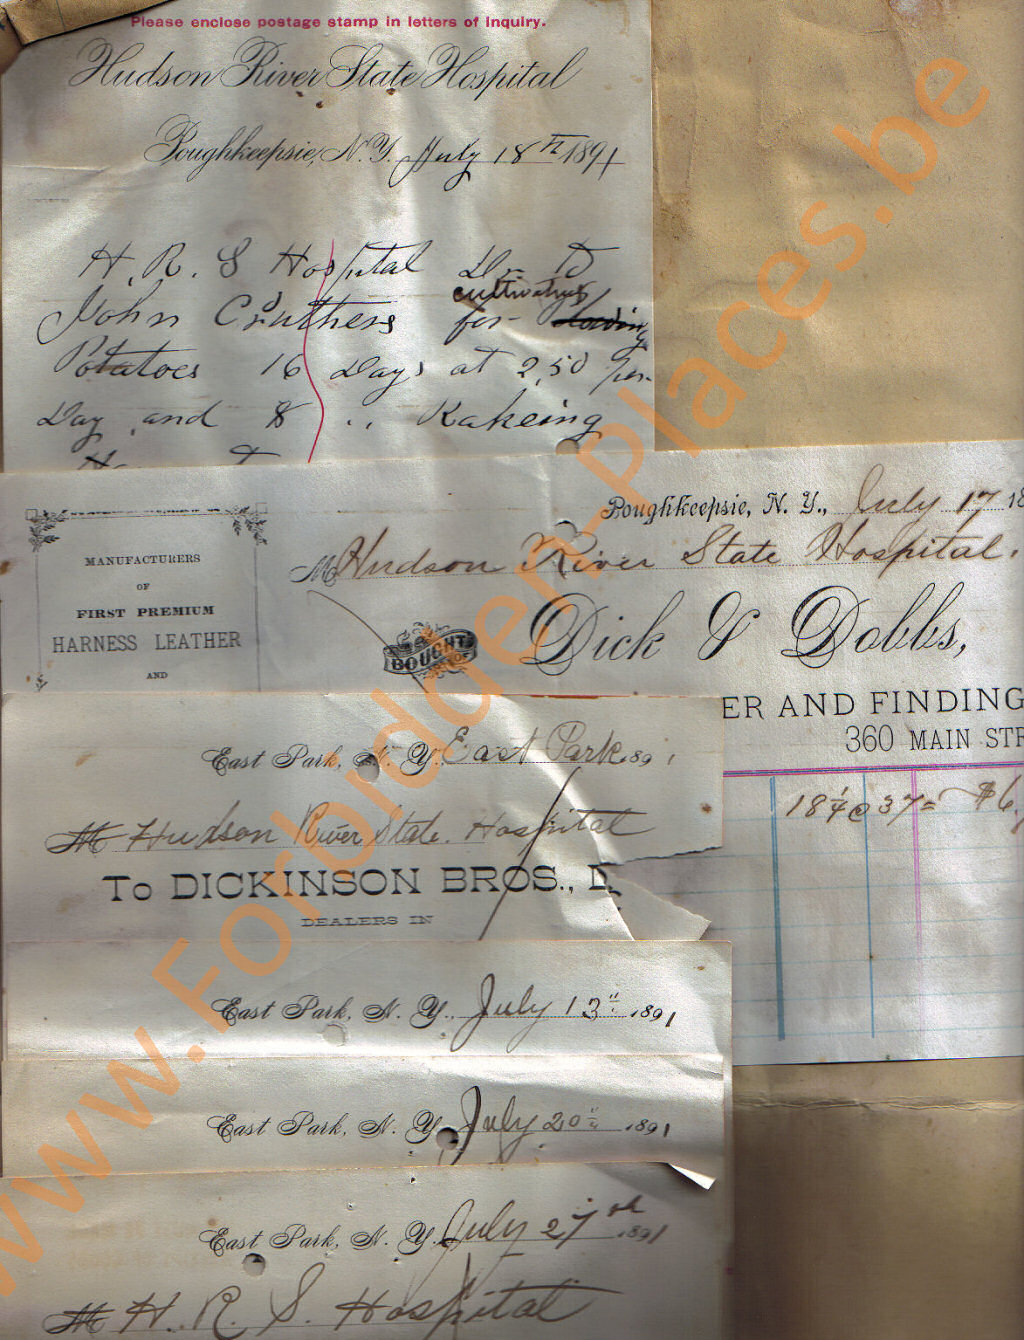 Please enclose postage stamp in letters of Inquiry.
Hudson River State Hospital
Poughkeepsie, N.Y. July 18th 1891
H. R. S Hospital Dr. To
cultivating
John Cruthers for
Potatoes 16 Days at 2,50 per
Day and 8 " Rakeing
Poughkeepsie, N. Y., July 17 18
M Hudson River State Hospital.
MANUFACTURERS
OF
FIRST PREMIUM
HARNESS LEATHER
AND
BOUGHT OF
Dick & Dobbs,
ER AND FINDING
360 MAIN STR
18 1/4 @ 37 = $6.
East Park, N. Y. East Park 1891
M Hudson River State Hospital
To DICKINSON BROS., D
DEALERS IN
East Park, N. Y., July 13" 1891
East Park, N. Y. July 20" 1891
East Park, N. Y. July 27th 1891
M H. R. S. Hospital
www.Forbidden-Places.be